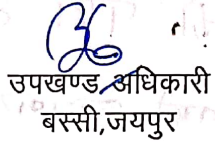 उपखण्ड अधिकारी
बस्सी,जयपुर